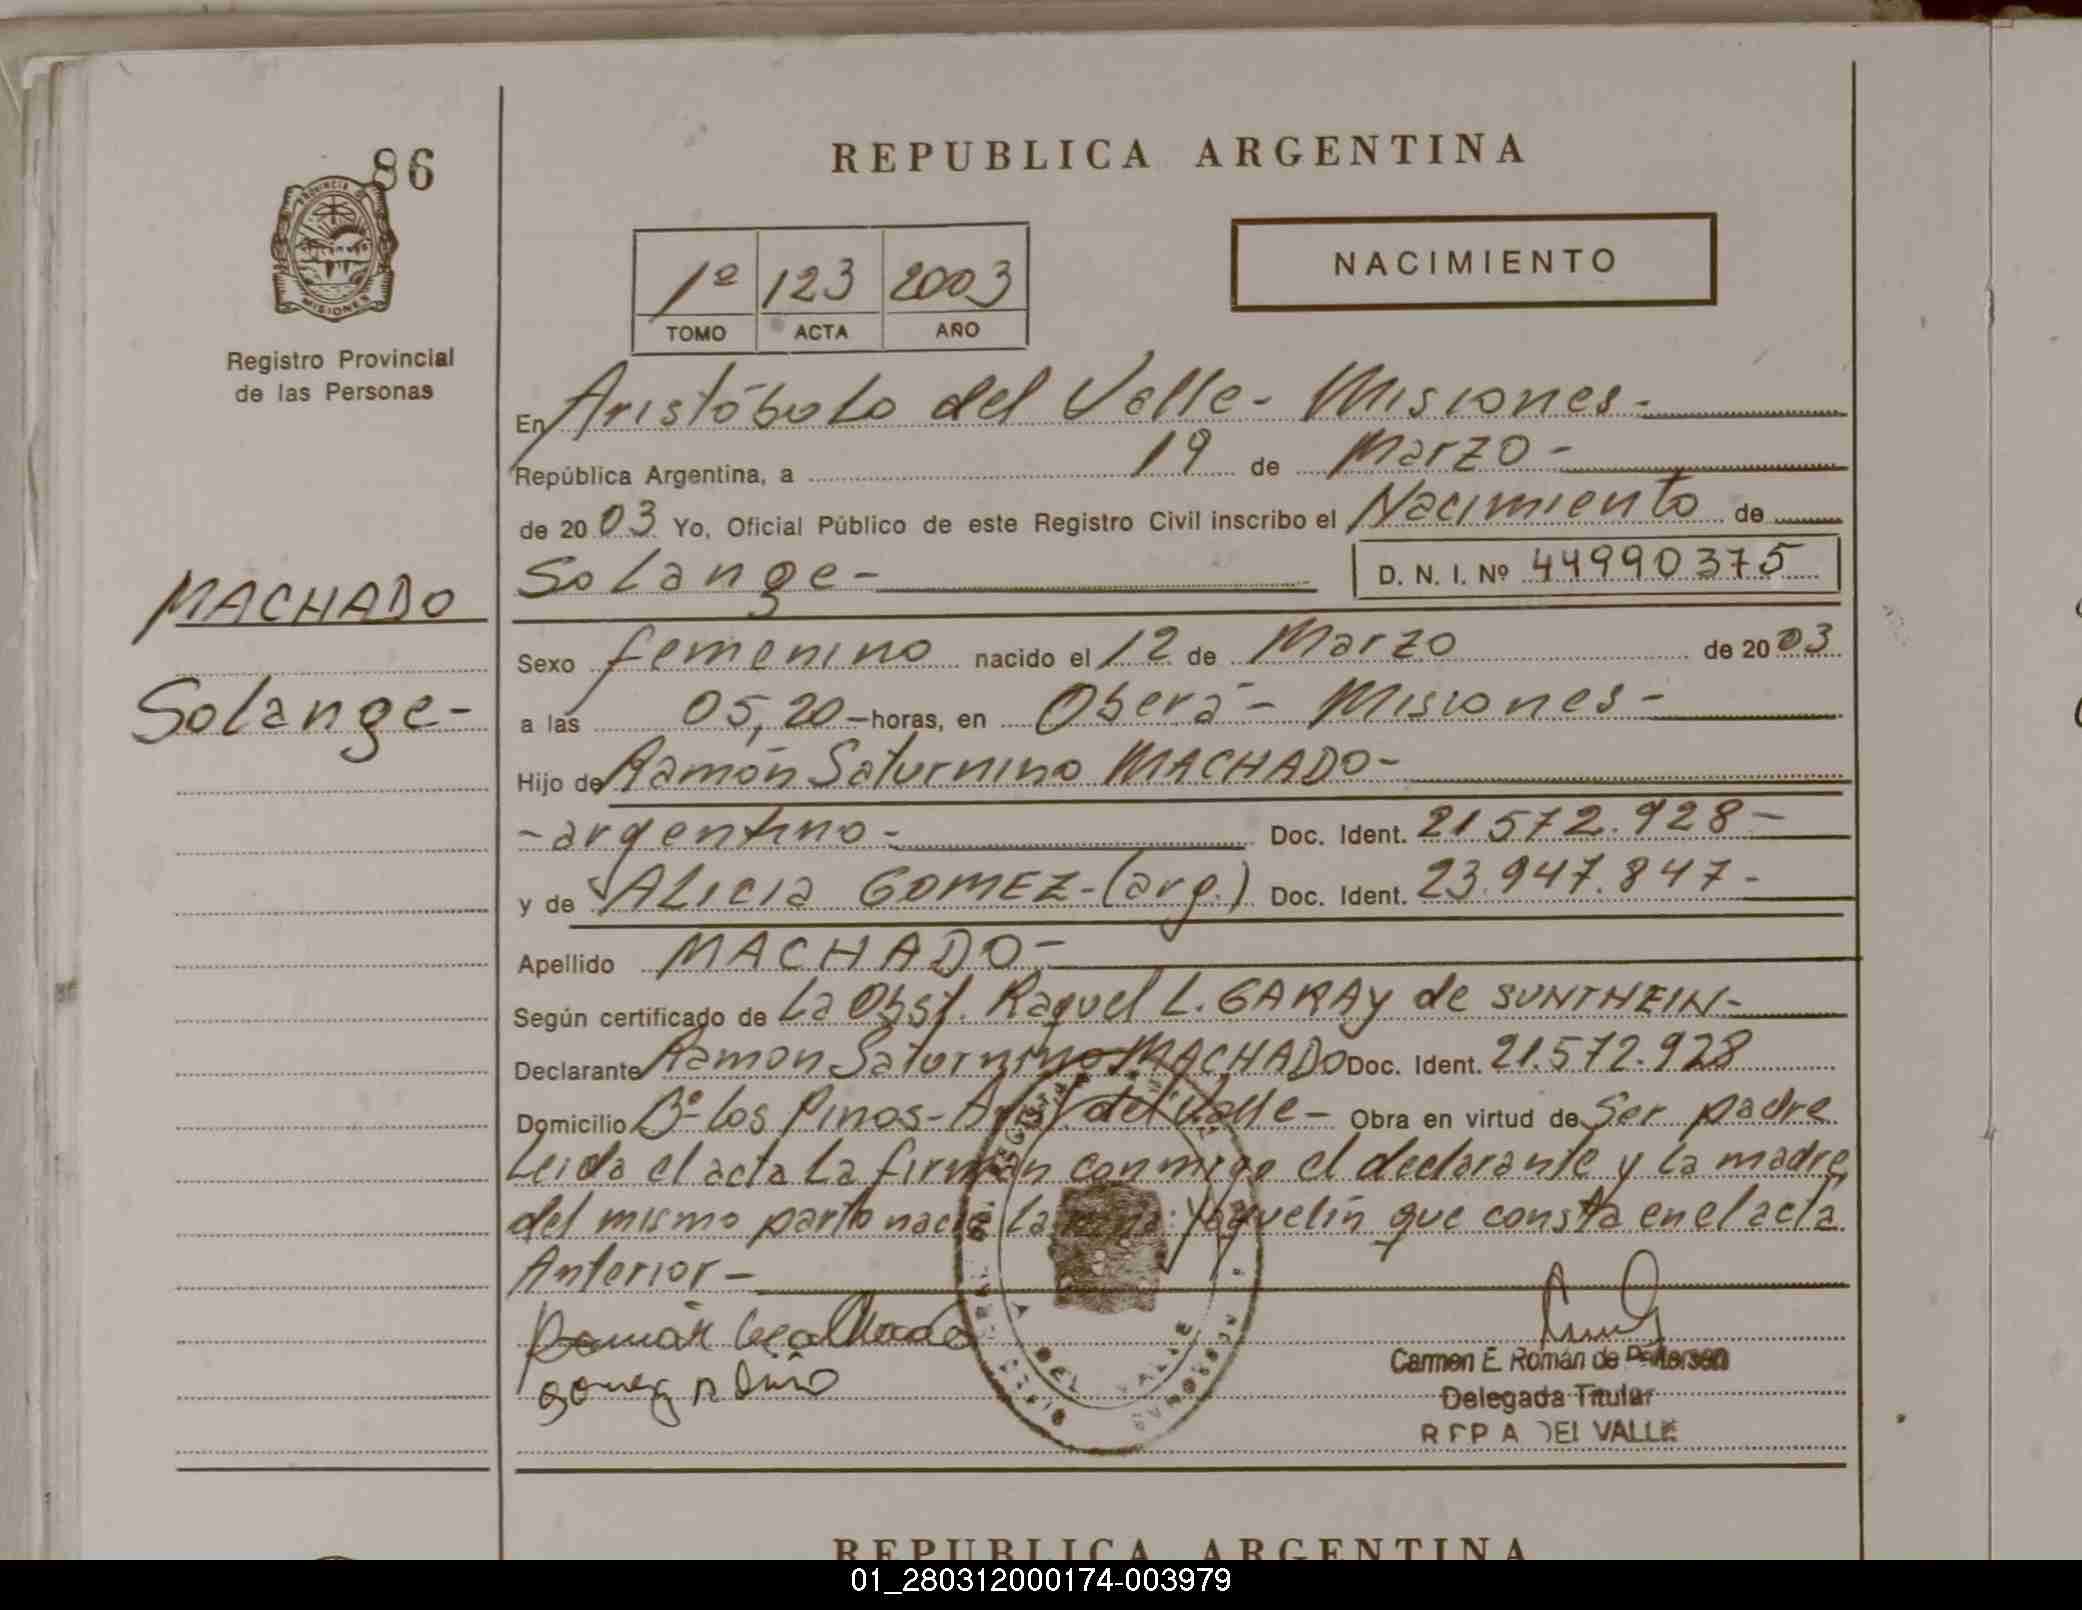 86
PROVINCIA DE
MISIONES
Registro Provincial
de las Personas
MACHADO
Solange-
REPUBLICA ARGENTINA
1º 123 2003
TOMO ACTA AÑO
NACIMIENTO
En Aristóbulo del Valle - Misiones -
República Argentina, a 19 de Marzo -
de 2003 Yo, Oficial Público de este Registro Civil inscribo el Nacimiento de
Solange - D. N. I. Nº 44990375
Sexo femenino nacido el 12 de Marzo de 2003
a las 05,20 - horas, en Oberá - Misiones -
Hijo de Ramón Saturnino MACHADO -
- argentino - Doc. Ident. 21.572.928 -
y de ALICIA GOMEZ - (arg.) Doc. Ident. 23.947.847 -
Apellido MACHADO -
Según certificado de La Obst. Raquel L. GARAY de SUNTHEIN -
Declarante Ramon Saturnino MACHADO Doc. Ident. 21.572.928
Domicilio Bº Los Pinos - Arist. del Valle - Obra en virtud de Ser padre
Leida el acta La firman conmigo el declarante y la madre
del mismo parto nació La niña: Yaquelin que consta en el acta
Anterior -
Carmen E. Román de Pettersen
Delegada Titular
DEL VALLE
REPUBLICA ARGENTINA
01_280312000174-003979